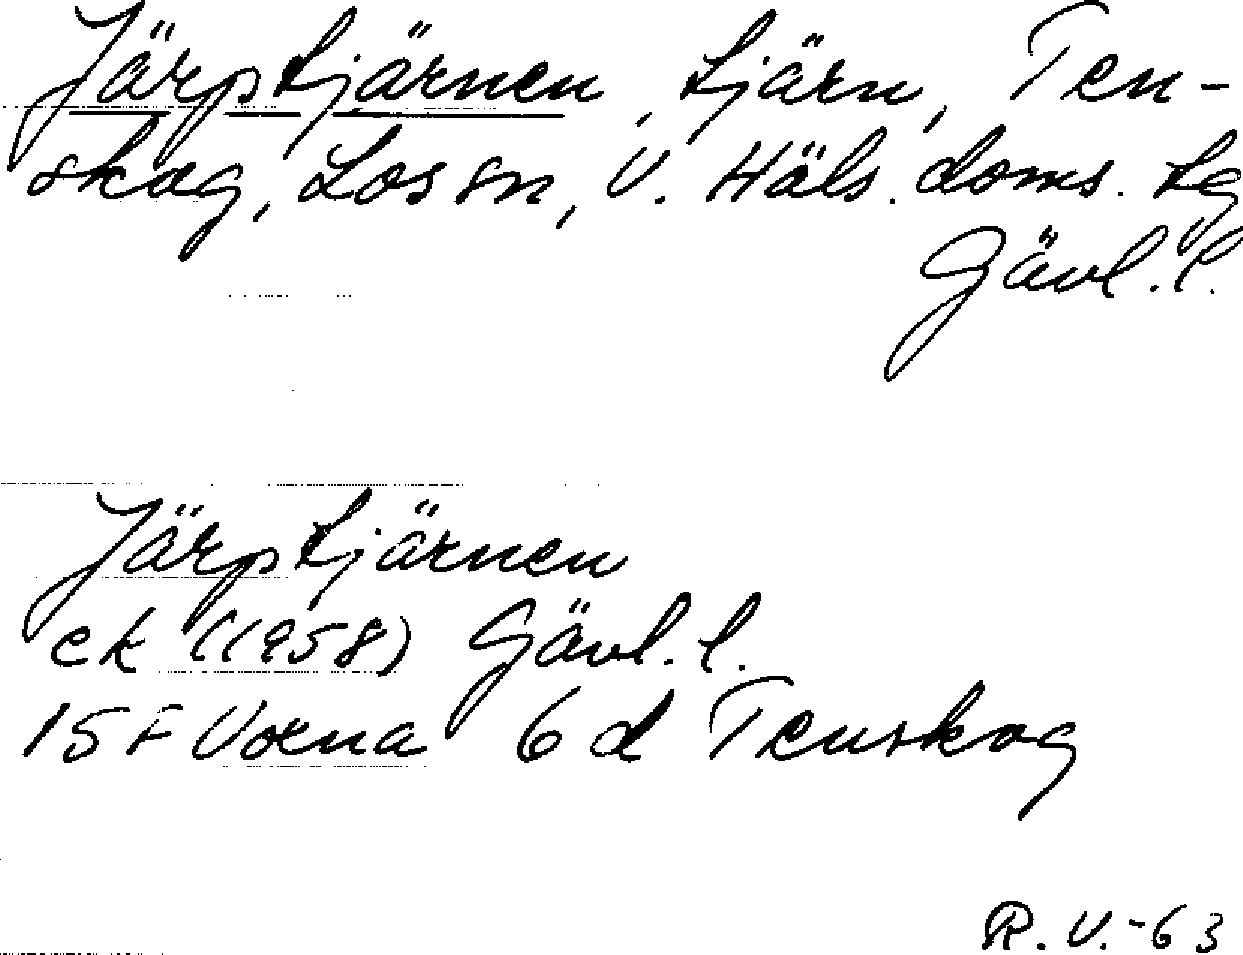 Järptjärnen, tjärn, Ten-
skog, Los sn, V. Häls. doms. tg
Gävl. l.
Järptjärnen
ek (1958) Gävl. l.
15 F Voxna 6 d Tenskog
R. V.-63